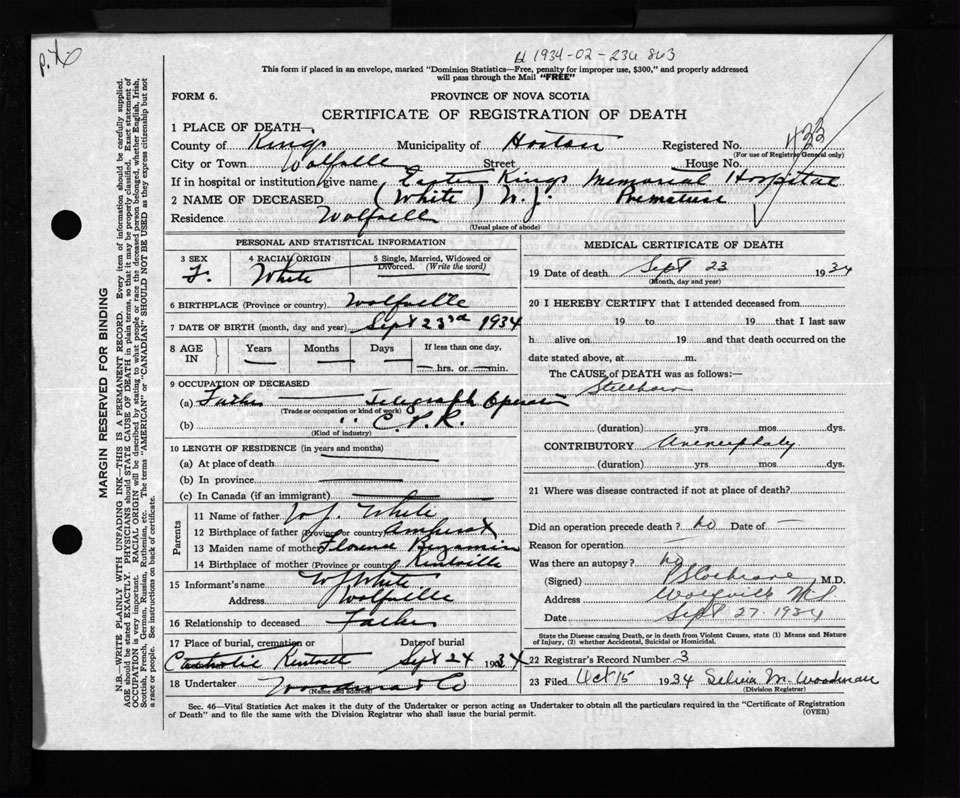 1934-02-236 843
This form if placed in an envelope, marked "Dominion Statistics—Free, penalty for improper use, $300," and properly addressed
will pass through the Mail "FREE"
FORM 6.
PROVINCE OF NOVA SCOTIA
CERTIFICATE OF REGISTRATION OF DEATH
433
1 PLACE OF DEATH—
County of Kings Municipality of Horton Registered No.
(For use of Registrar General only)
City or Town Wolfville Street House No.
If in hospital or institution, give name Eastern Kings Memorial Hospital
2 NAME OF DECEASED (White) W. J. Premature
Residence Wolfville
(Usual place of abode)
PERSONAL AND STATISTICAL INFORMATION
3 SEX 4 RACIAL ORIGIN 5 Single, Married, Widowed or
Divorced. (Write the word)
F. White
6 BIRTHPLACE (Province or country) Wolfville
7 DATE OF BIRTH (month, day and year) Sept 23rd 1934
8 AGE IN Years Months Days If less than one day,
hrs. or min.
9 OCCUPATION OF DECEASED
(a) Father — Telegraph Operator
(Trade or occupation or kind of work)
(b) " C.P.R.
(Kind of industry)
10 LENGTH OF RESIDENCE (in years and months)
(a) At place of death
(b) In province
(c) In Canada (if an immigrant)
Parents
11 Name of father W. J. White
12 Birthplace of father (Province or country) Amherst
13 Maiden name of mother Florence Benjamin
14 Birthplace of mother (Province or country) Kentville
15 Informant's name W J White
Address Wolfville
16 Relationship to deceased Father
17 Place of burial, cremation or Date of burial
Catholic Kentville Sept 24 1934
18 Undertaker Woodman & Co
(Name and address)
MEDICAL CERTIFICATE OF DEATH
19 Date of death Sept 23 1934
(Month, day and year)
20 I HEREBY CERTIFY that I attended deceased from
19 to 19 that I last saw
h alive on 19 and that death occurred on the
date stated above, at m.
The CAUSE of DEATH was as follows:—
Stillborn
(duration) yrs mos dys.
CONTRIBUTORY Anencephaly
(duration) yrs mos dys.
21 Where was disease contracted if not at place of death?
Did an operation precede death? no Date of —
Reason for operation —
Was there an autopsy? no
(Signed) P S Cochrane M.D.
Address Wolfville N.S.
Date Sept 27. 1934
State the Disease causing Death, or in death from Violent Causes, state (1) Means and Nature
of Injury, (2) whether Accidental, Suicidal or Homicidal.
22 Registrar's Record Number 3
23 Filed Oct 15 1934 Selina M. Woodman
(Division Registrar)
Sec. 46—Vital Statistics Act makes it the duty of the Undertaker or person acting as Undertaker to obtain all the particulars required in the "Certificate of Registration
of Death" and to file the same with the Division Registrar who shall issue the burial permit. (OVER)
MARGIN RESERVED FOR BINDING
N.B.—WRITE PLAINLY WITH UNFADING INK—THIS IS A PERMANENT RECORD. Every item of information should be carefully supplied.
AGE should be stated EXACTLY. PHYSICIANS should STATE CAUSE OF DEATH in plain terms, so that it may be properly classified. Exact statement of
OCCUPATION is very important. RACIAL ORIGIN will be described by stating to what people or race the deceased person belonged, whether English, Irish,
Scottish, French, German, Russian, Ruthenian, etc. The terms "AMERICAN" or "CANADIAN" SHOULD NOT BE USED as they express citizenship but not
a race or people. See instructions on back of certificate.